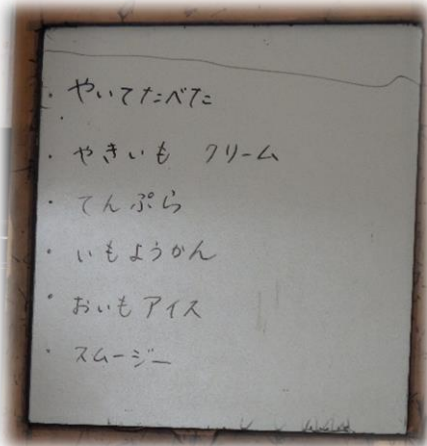 ・やいてたべた
・やきいも クリーム
・てんぷら
・いもようかん
・おいもアイス
・スムージー